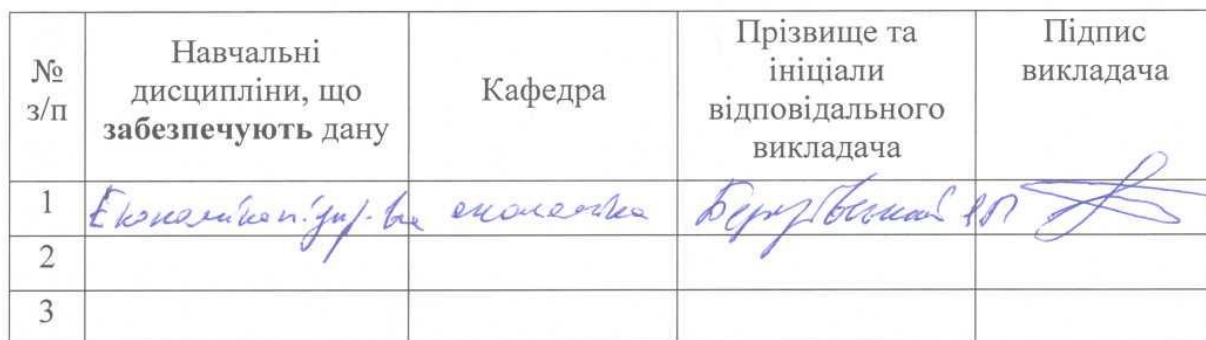 № з/п
Навчальні дисципліни, що забезпечують дану
Кафедра
Прізвище та ініціали відповідального викладача
Підпис викладача
1 Економіка підпр-ва економіка
2
3